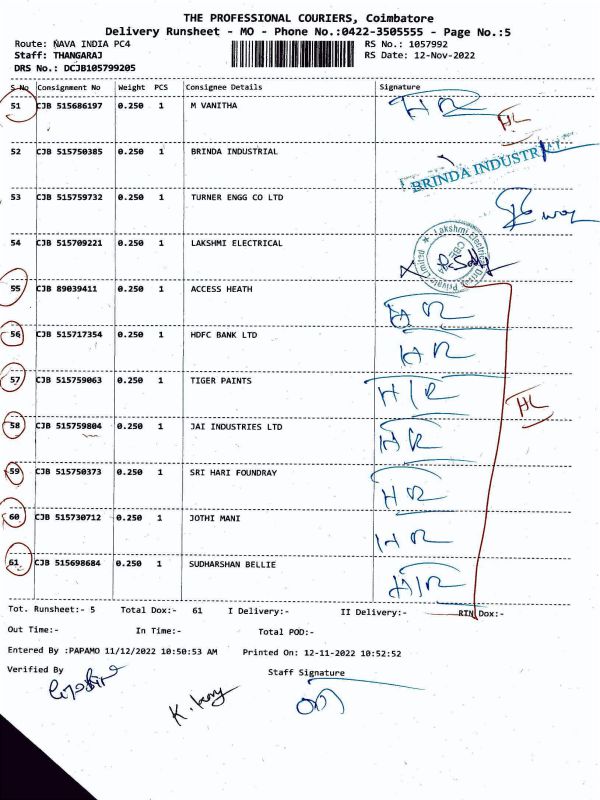 THE PROFESSIONAL COURIERS, Coimbatore
Delivery Runsheet - MO - Phone No.:0422-3505555 - Page No.:5
Route: NAVA INDIA PC4 RS No.: 1057992
Staff: THANGARAJ RS Date: 12-Nov-2022
DRS No.: DCJB105799205
S.No Consignment No Weight PCS Consignee Details Signature
51 CJB 515686197 0.250 1 M VANITHA H R
HL
52 CJB 515750385 0.250 1 BRINDA INDUSTRIAL BRINDA INDUSTRIAL
53 CJB 515759732 0.250 1 TURNER ENGG CO LTD
54 CJB 515709221 0.250 1 LAKSHMI ELECTRICAL
Lakshmi Electrical Drives Private Limited
CBE
55 CJB 89039411 0.250 1 ACCESS HEATH H R
56 CJB 515717354 0.250 1 HDFC BANK LTD H R
57 CJB 515759063 0.250 1 TIGER PAINTS H/R
HL
58 CJB 515759804 0.250 1 JAI INDUSTRIES LTD H R
59 CJB 515750373 0.250 1 SRI HARI FOUNDRAY H R
60 CJB 515730712 0.250 1 JOTHI MANI H R
61 CJB 515698684 0.250 1 SUDHARSHAN BELLIE H/R
Tot. Runsheet:- 5 Total Dox:- 61 I Delivery:- II Delivery:- RTN Dox:-
Out Time:- In Time:- Total POD:-
Entered By :PAPAMO 11/12/2022 10:50:53 AM Printed On: 12-11-2022 10:52:52
Verified By Staff Signature